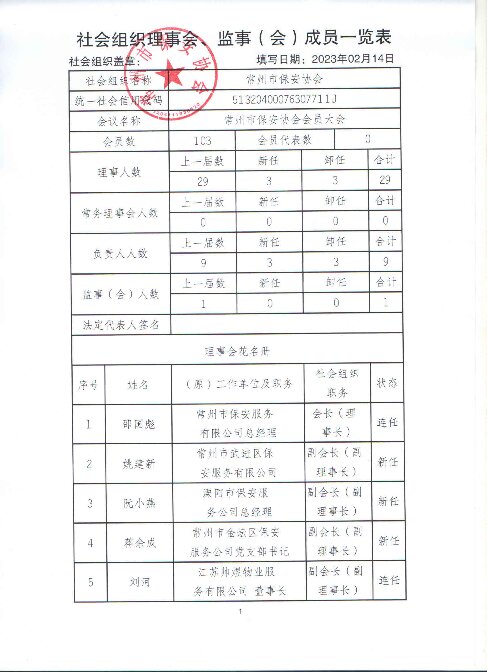 社会组织理事会、监事（会）成员一览表
社会组织盖章： 填写日期：2023年02月14日
社会组织名称 常州市保安协会
统一社会信用代码 51320400076307711J
会议名称 常州市保安协会会员大会
会员数 103 会员代表数 0
理事人数 上一届数 新任 卸任 合计
29 3 3 29
常务理事会人数 上一届数 新任 卸任 合计
0 0 0 0
负责人人数 上一届数 新任 卸任 合计
9 3 3 9
监事（会）人数 上一届数 新任 卸任 合计
1 0 0 1
法定代表人签名
理事会花名册
序号 姓名 （原）工作单位及职务 社会组织职务 状态
1 邵国彪 常州市保安服务
有限公司总经理 会长（理事长） 连任
2 姚建新 常州市武进区保
安服务有限公司 副会长（副理事长） 新任
3 阮小燕 溧阳市保安服
务公司总经理 副会长（副理事长） 新任
4 余成 常州市金坛区保安
服务公司党支部书记 副会长（副理事长） 新任
5 刘河 江苏帅煜物业服
务有限公司 董事长 副会长（副理事长） 连任
1